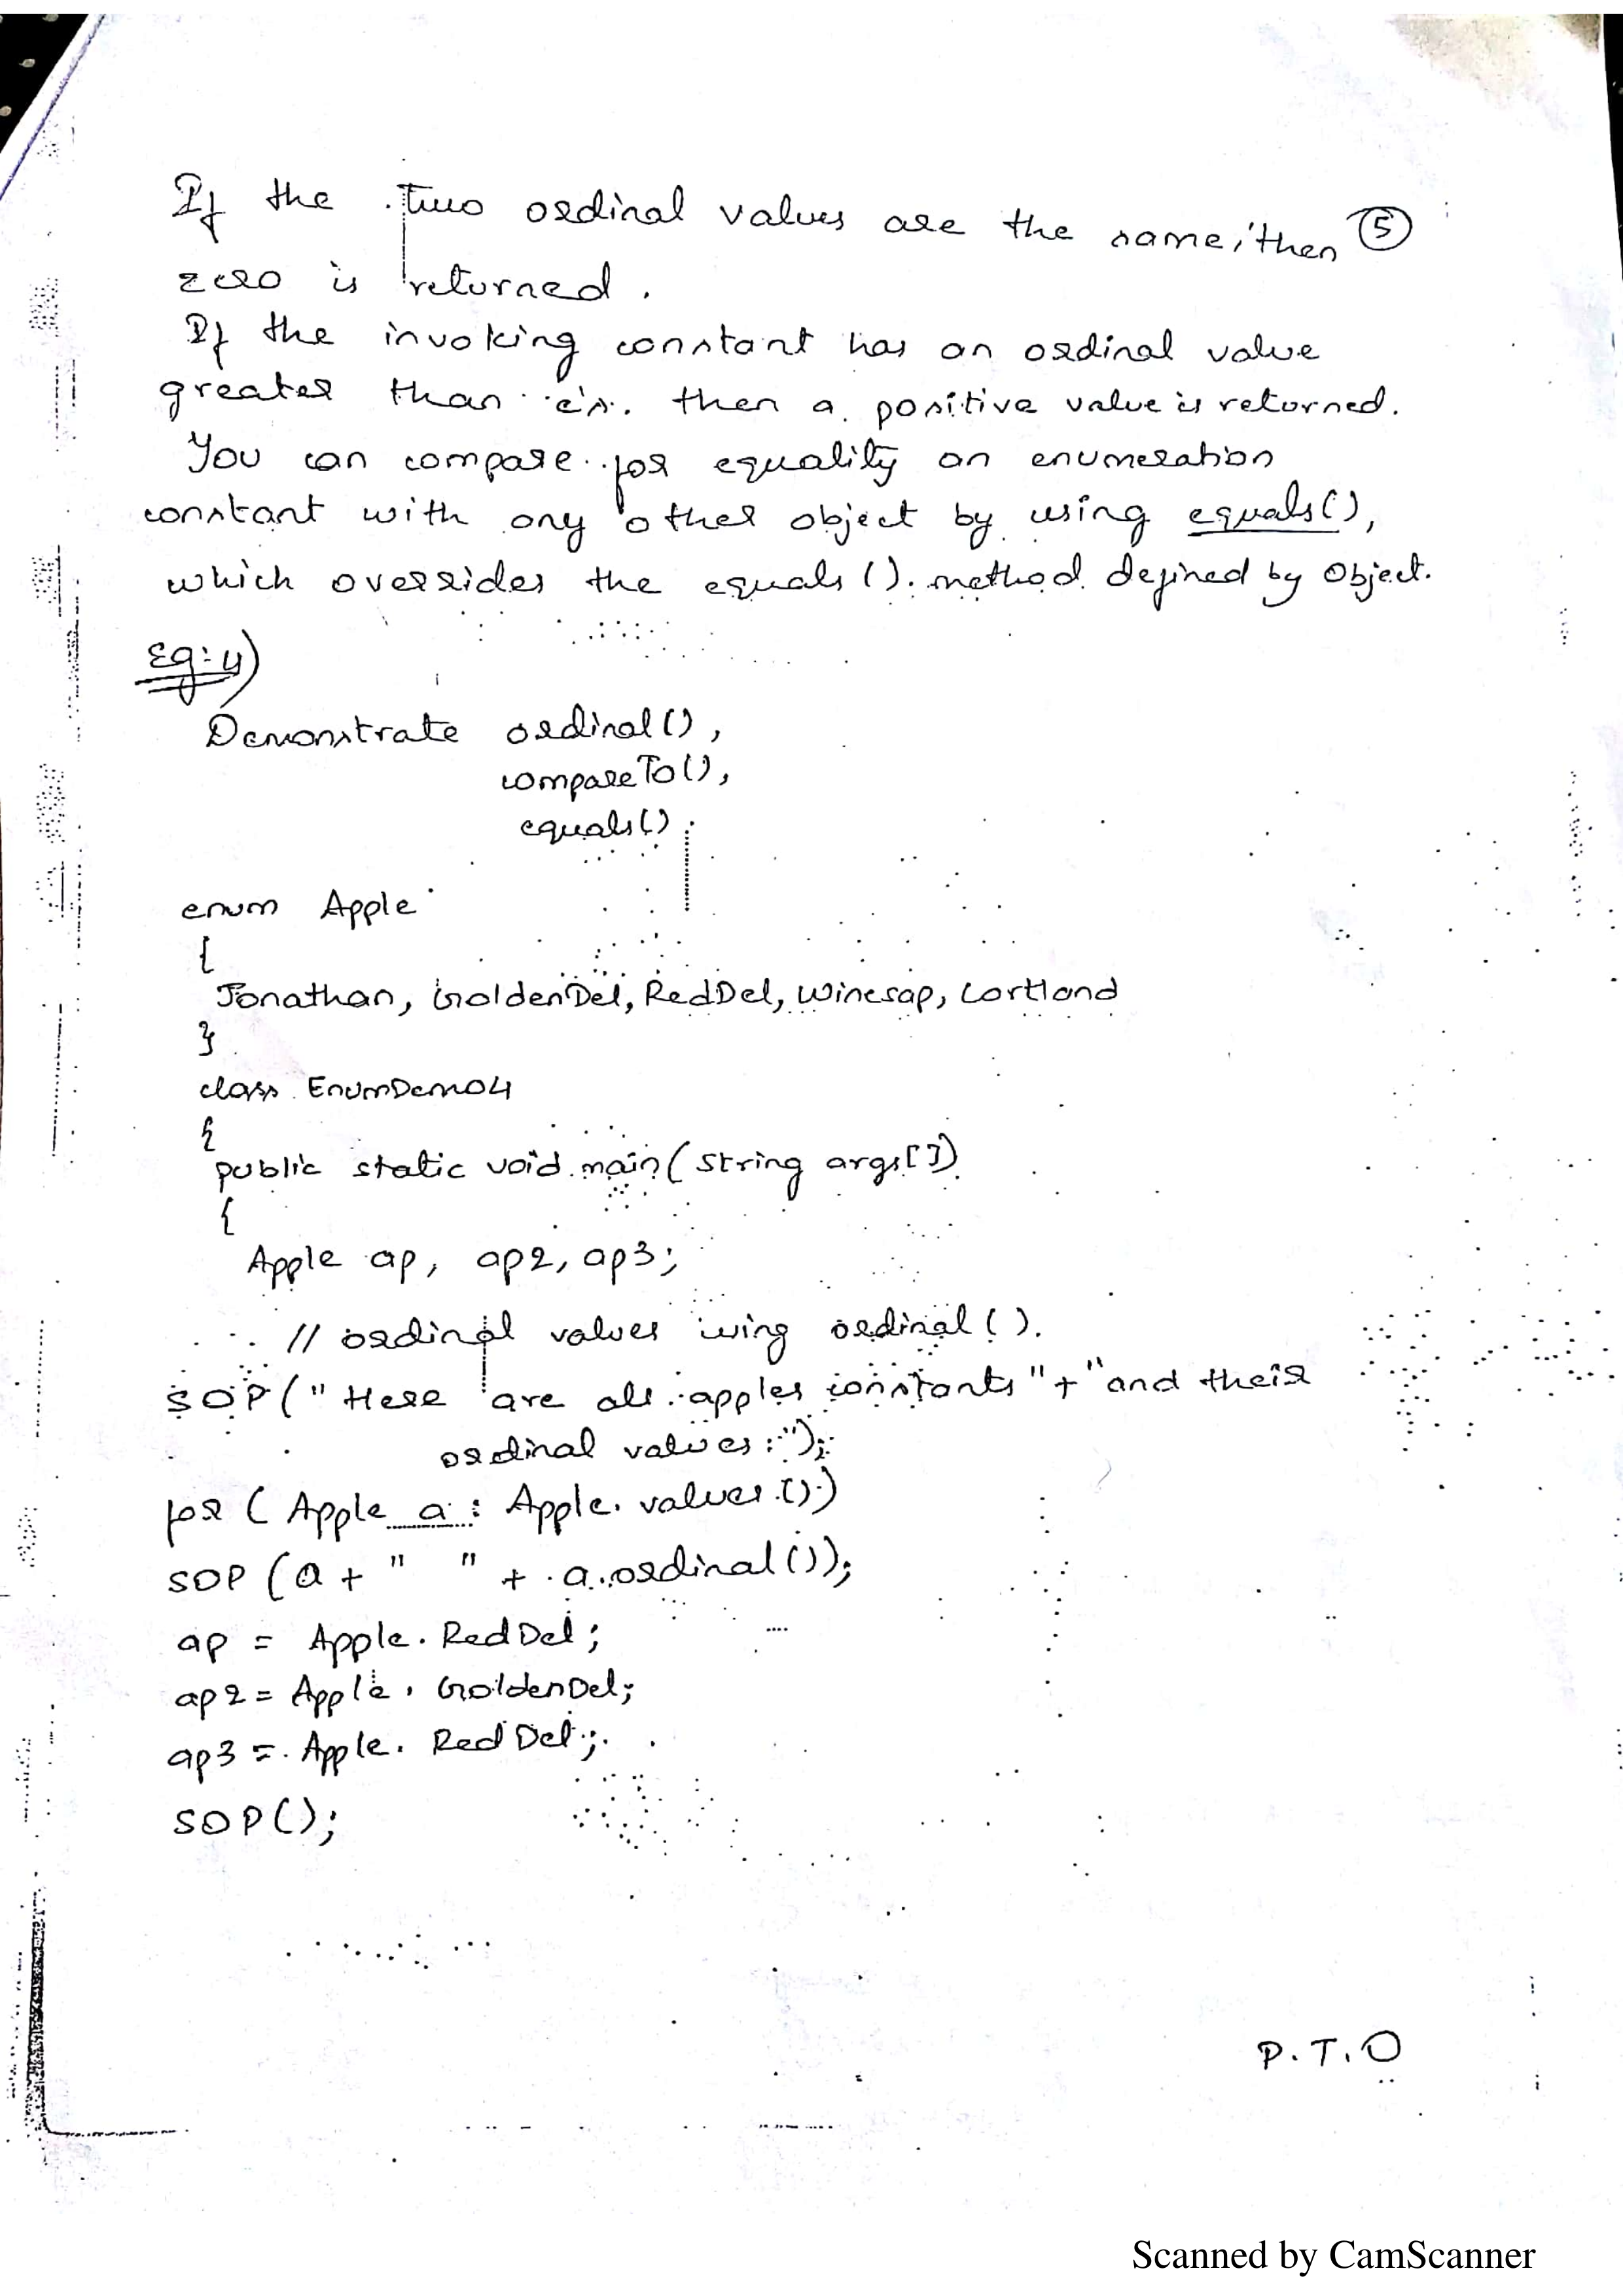 If the two ordinal values are the same, then ⑤
zero is returned.
If the invoking constant has an ordinal value
greater than e's. then a positive value is returned.
You can compare for equality an enumeration
constant with any other object by using equals(),
which overrides the equals() method defined by Object.
Eg:4)
Demonstrate ordinal(),
compareTo(),
equals().
enum Apple
{
Jonathan, GoldenDel, RedDel, Winesap, Cortland
}
class EnumDemo4
{
public static void main(String args[])
{
Apple ap, ap2, ap3;
// ordinal values using ordinal().
SOP("Here are all apples constants"+"and their
ordinal values:");
for (Apple a : Apple.values())
SOP (a + "  " + a.ordinal());
ap = Apple.RedDel;
ap2 = Apple.GoldenDel;
ap3 = Apple.RedDel;
SOP();
P.T.O
Scanned by CamScanner